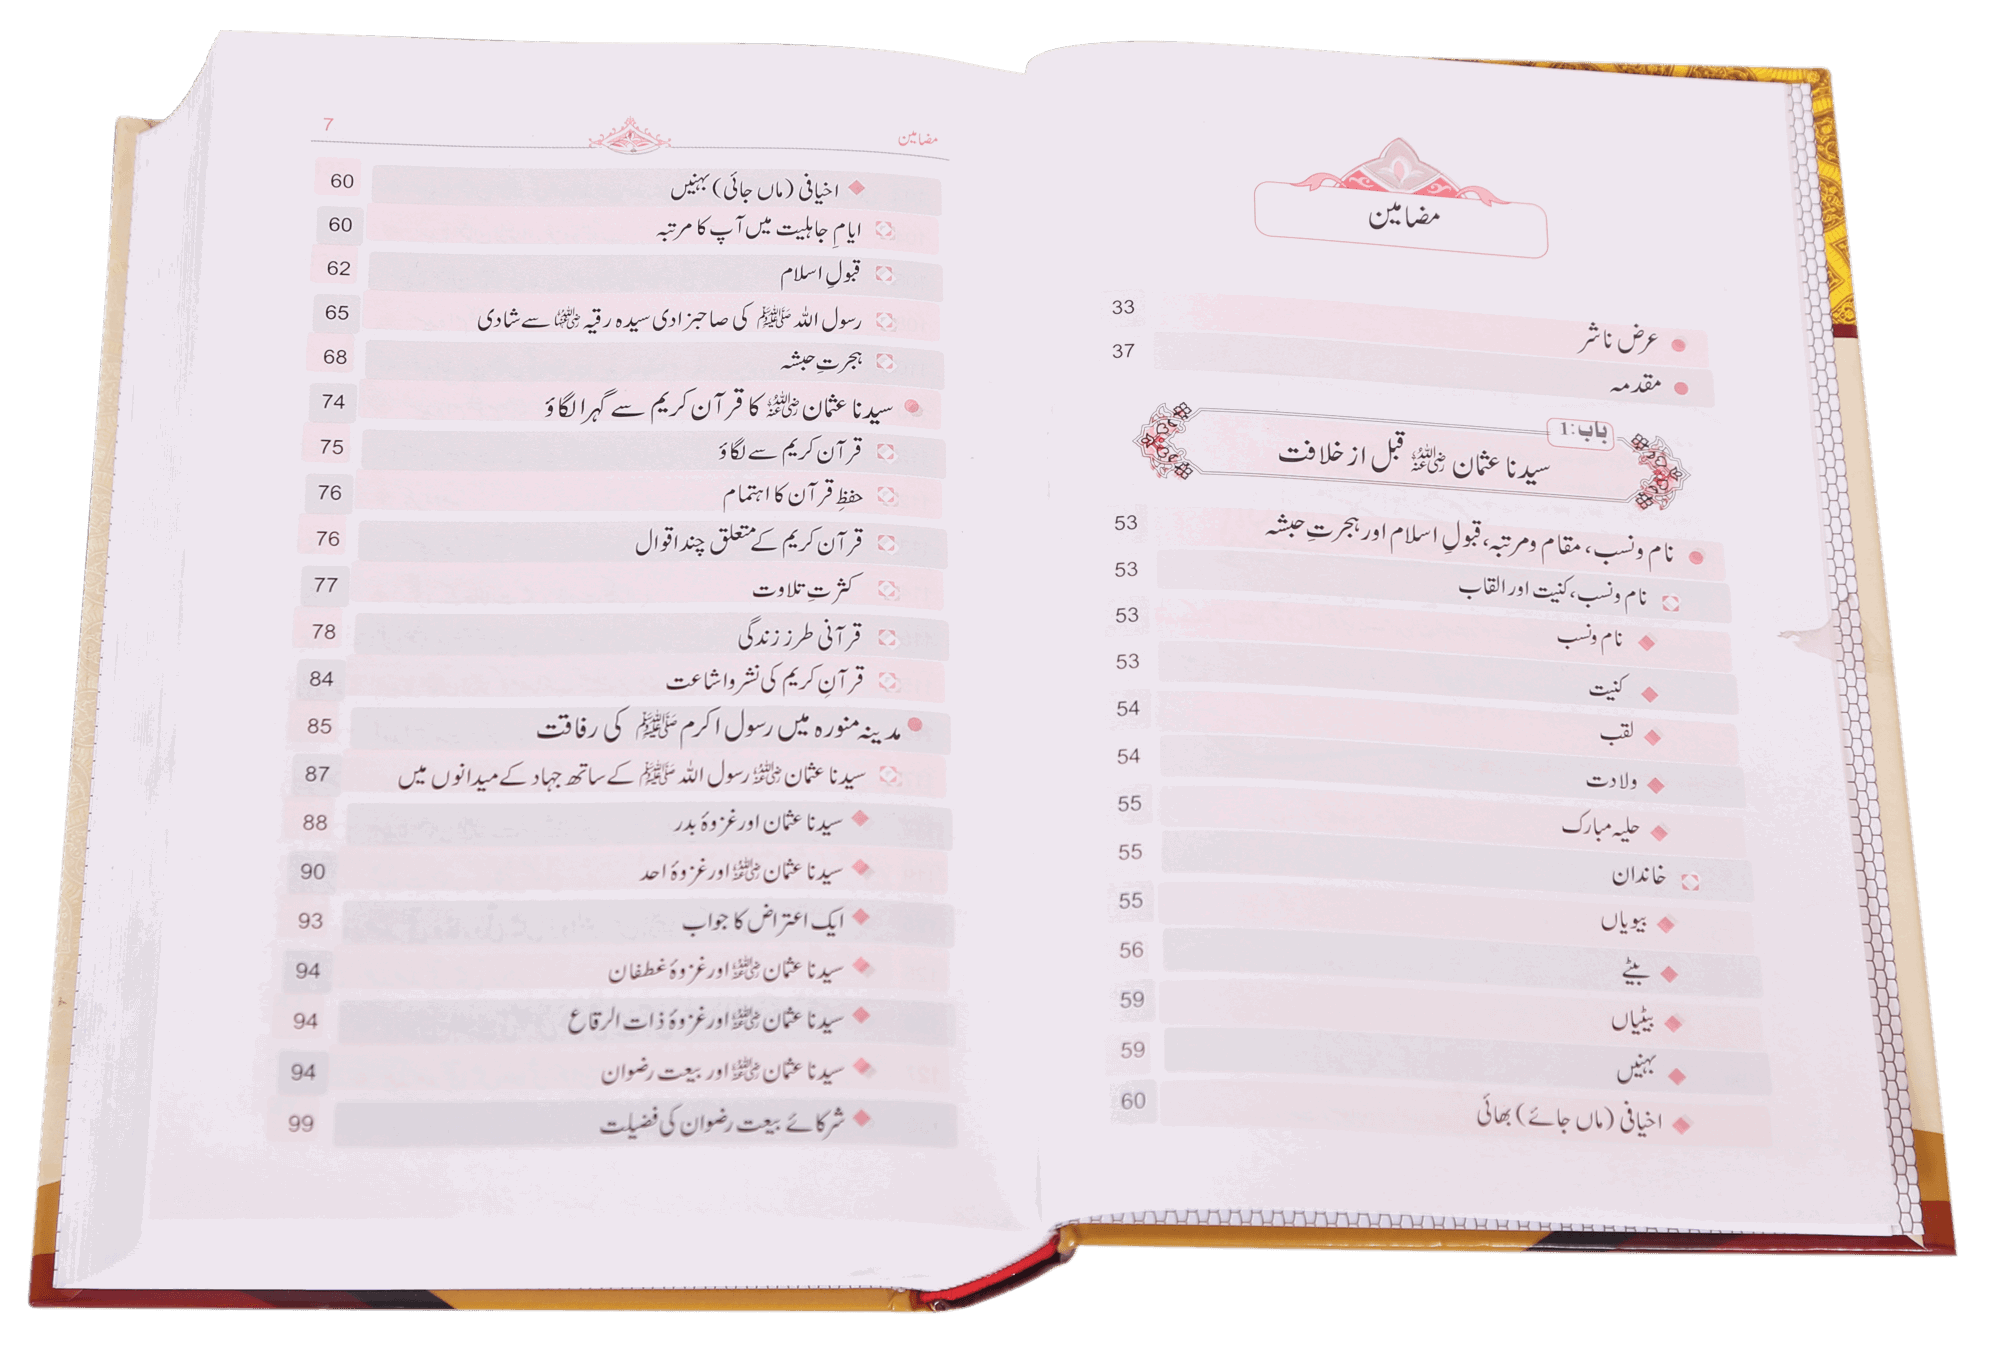 مضامین
عرض ناشر 33
مقدمہ 37
باب:1
سیدنا عثمان رضی اللہ عنہ قبل از خلافت
نام ونسب، مقام ومرتبہ، قبولِ اسلام اور ہجرتِ حبشہ 53
نام ونسب، کنیت اور القاب 53
نام ونسب 53
کنیت 53
لقب 54
ولادت 54
حلیہ مبارک 55
خاندان 55
بیویاں 55
بیٹے 56
بیٹیاں 59
بہنیں 59
اخیافی (ماں جائے) بھائی 60
مضامین 7
اخیافی (ماں جائی) بہنیں 60
ایامِ جاہلیت میں آپ کا مرتبہ 60
قبولِ اسلام 62
رسول اللہ ﷺ کی صاحبزادی سیدہ رقیہ رضی اللہ عنہا سے شادی 65
ہجرتِ حبشہ 68
سیدنا عثمان رضی اللہ عنہ کا قرآن کریم سے گہرا لگاؤ 74
قرآن کریم سے لگاؤ 75
حفظِ قرآن کا اہتمام 76
قرآن کریم کے متعلق چند اقوال 76
کثرتِ تلاوت 77
قرآنی طرز زندگی 78
قرآنِ کریم کی نشر واشاعت 84
مدینہ منورہ میں رسول اکرم ﷺ کی رفاقت 85
سیدنا عثمان رضی اللہ عنہ رسول اللہ ﷺ کے ساتھ جہاد کے میدانوں میں 87
سیدنا عثمان اور غزوۂ بدر 88
سیدنا عثمان رضی اللہ عنہ اور غزوۂ احد 90
ایک اعتراض کا جواب 93
سیدنا عثمان رضی اللہ عنہ اور غزوۂ غطفان 94
سیدنا عثمان رضی اللہ عنہ اور غزوۂ ذات الرقاع 94
سیدنا عثمان رضی اللہ عنہ اور بیعت رضوان 94
شرکائے بیعت رضوان کی فضیلت 99